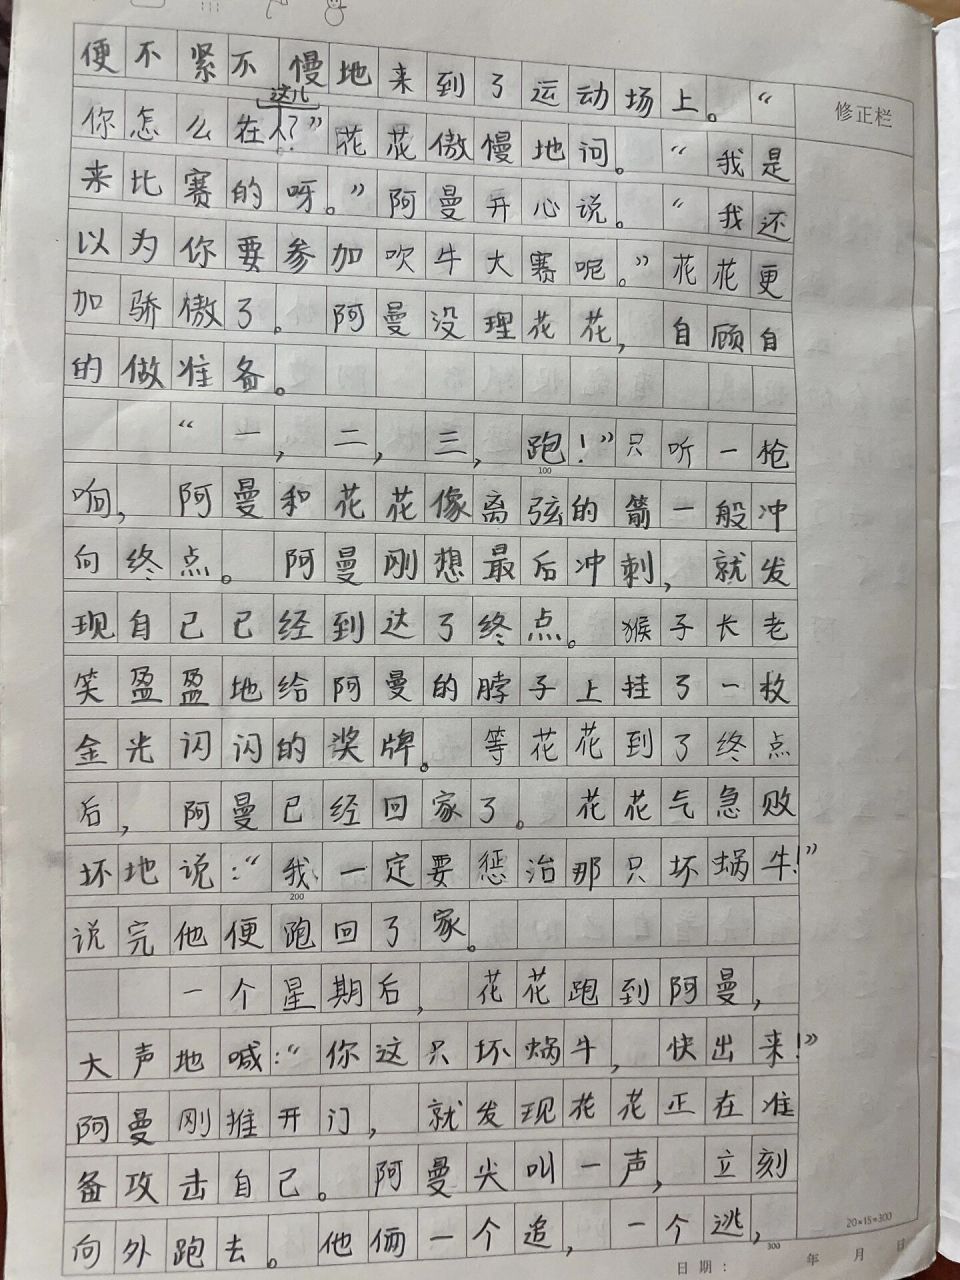 便不紧不慢地来到了运动场上。“
这儿
你怎么在?”花花傲慢地问。“我是
修正栏
来比赛的呀。”阿曼开心说。“我还
以为你要参加吹牛大赛呢。”花花更
加骄傲了。阿曼没理花花,自顾自
的做准备。
“一,二,三,跑!”只听一枪
100
响,阿曼和花花像离弦的箭一般冲
向终点。阿曼刚想最后冲刺,就发
现自己已经到达了终点。猴子长老
笑盈盈地给阿曼的脖子上挂了一枚
金光闪闪的奖牌。等花花到了终点
后,阿曼已经回家了。花花气急败
坏地说:“我一定要惩治那只坏蜗牛!”
200
说完他便跑回了家。
一个星期后,花花跑到阿曼,
大声地喊:“你这只坏蜗牛,快出来!”
阿曼刚推开门,就发现花花正在准
备攻击自己。阿曼尖叫一声,立刻
向外跑去。他俩一个追,一个逃,
300
20×15=300
日期: 年 月 日